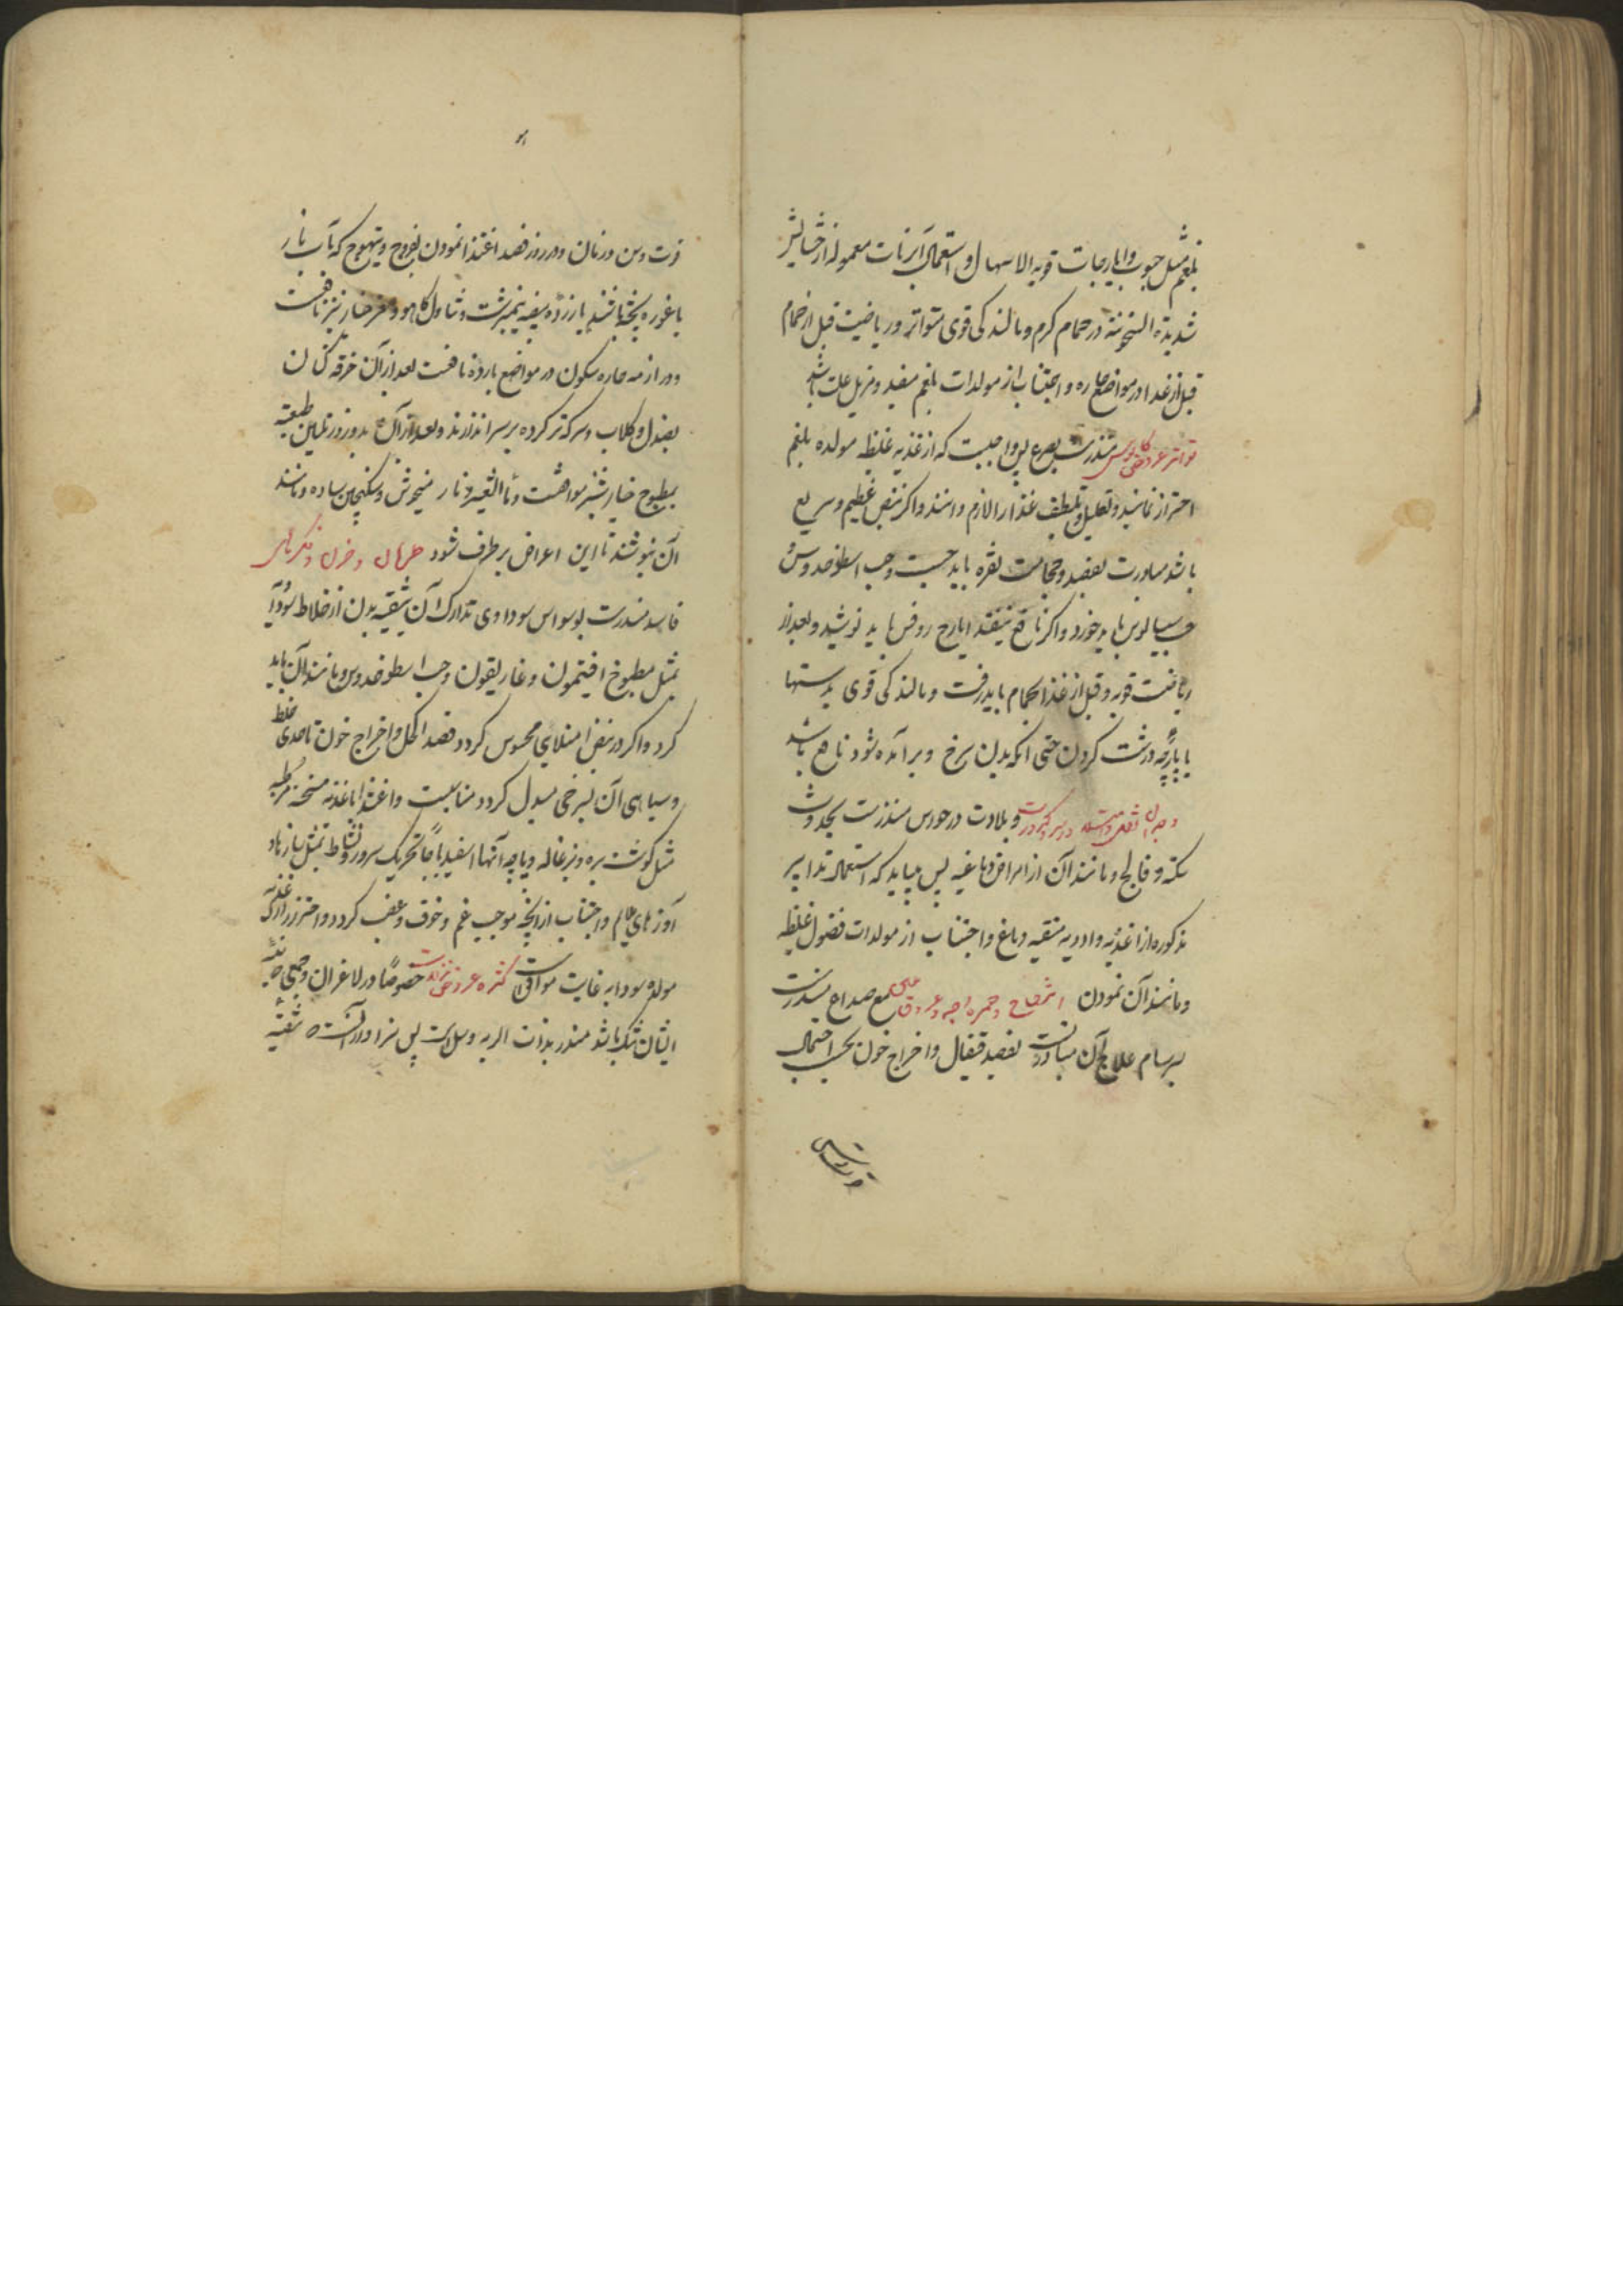 بلغم مثل حبوب و ایارجات قویه الاسهال و استعمال آبزنات معموله از حشایش
شدیدة السخونة در حمام کرم و مالند کی قوی متواتر و ریاضیت قبل از حمام
قبل از غذا در مواضع حاره و اجتناب از مولدات بلغم مفید و مزیل علت باشد
تواتر عروض کابوس منذرست بصرع پس واجبست که از اغذیه غلیظه مولده بلغم
احتراز نمایند و تقلیل و تلطیف غذا را لازم دانند و اکر نبض عظیم و سریع
باشد مبادرت بفصد و حجامت نقره باید جست و حب اسطوخدوس
حب بیالوس باید خورد و اکر نافع نیفتد ایارج روفس باید نوشید و بعد از
ریاضت قویه و قبل از غذا بحمام باید رفت و مالند کی قوی بدستها
یا پارچه درشت کردن حتی انکه بدن سرخ و برآمده شود نافع باشد
و بلادت در حواس منذرست بحدوث
سکته و فالج و مانند آن از امراض دماغیه پس میباید که استعمال تدابیر
مذکوره از اغذیه و ادویه منقیه دماغ و اجتناب از مولدات فضول غلیظه
و مانند آن نمودن و حمره وجه و عروق مع صداع منذرست
بسرسام علاج آن مبادرت بفصد قیفال و اخراج خون بحسب احتمال
قوتست
قوت و سن و زمان و در روز فصد اغتذا نمودن بفروج و تیهوج که بآب نار
یا غوره پخته باشند یا زرده بیضه نیمبرشت و تناول کاهو و مغز خیار نیز نافعست
و در ازمنه حاره سکون در مواضع بارده نافعست بعد از آن خرقه کتان
بصندل و کلاب و سرکه تر کرده بر سر اندازند و بعد از آن بدو روز تلیین طبیعة
بمطبوخ خیارشنبر موافقست و ماالشعیر و نار میخوش و سکنجبین ساده و مانند
آن بنوشند تا این اعراض بر طرف شود و حزن و فکرهای
فاسد منذرست بوسواس سوداوی تدارک آن بتنقیه بدن از اخلاط سوداوی
بمثل مطبوخ افتیمون و غاریقون و حب اسطوخدوس و مانند آن باید
کرد و اکر در نبض امتلای محسوس کردد فصد اکحل و اخراج خون تا حدی که غلظ
و سیاهی آن بسرخی مبدل کردد مناسبست و اغتذا باغذیه مسخنه مرطبه
مثل کوشت بره و بزغاله و پاچه آنها اسفیدباجا تحریک سرور و نشاط بمثل ساز و
آوازهای ملایم و اجتناب از آنچه موجب غم و خوف و غضب کردد و احتراز از اغذیه که
مولد سودا به غایت موافقست کثره عروض نزلات خصوصا در لاغران و جمعی که سینه
ایشان تنک باشد منذر بذات الریه و سل است پس سزاوار آنست که تنقیه